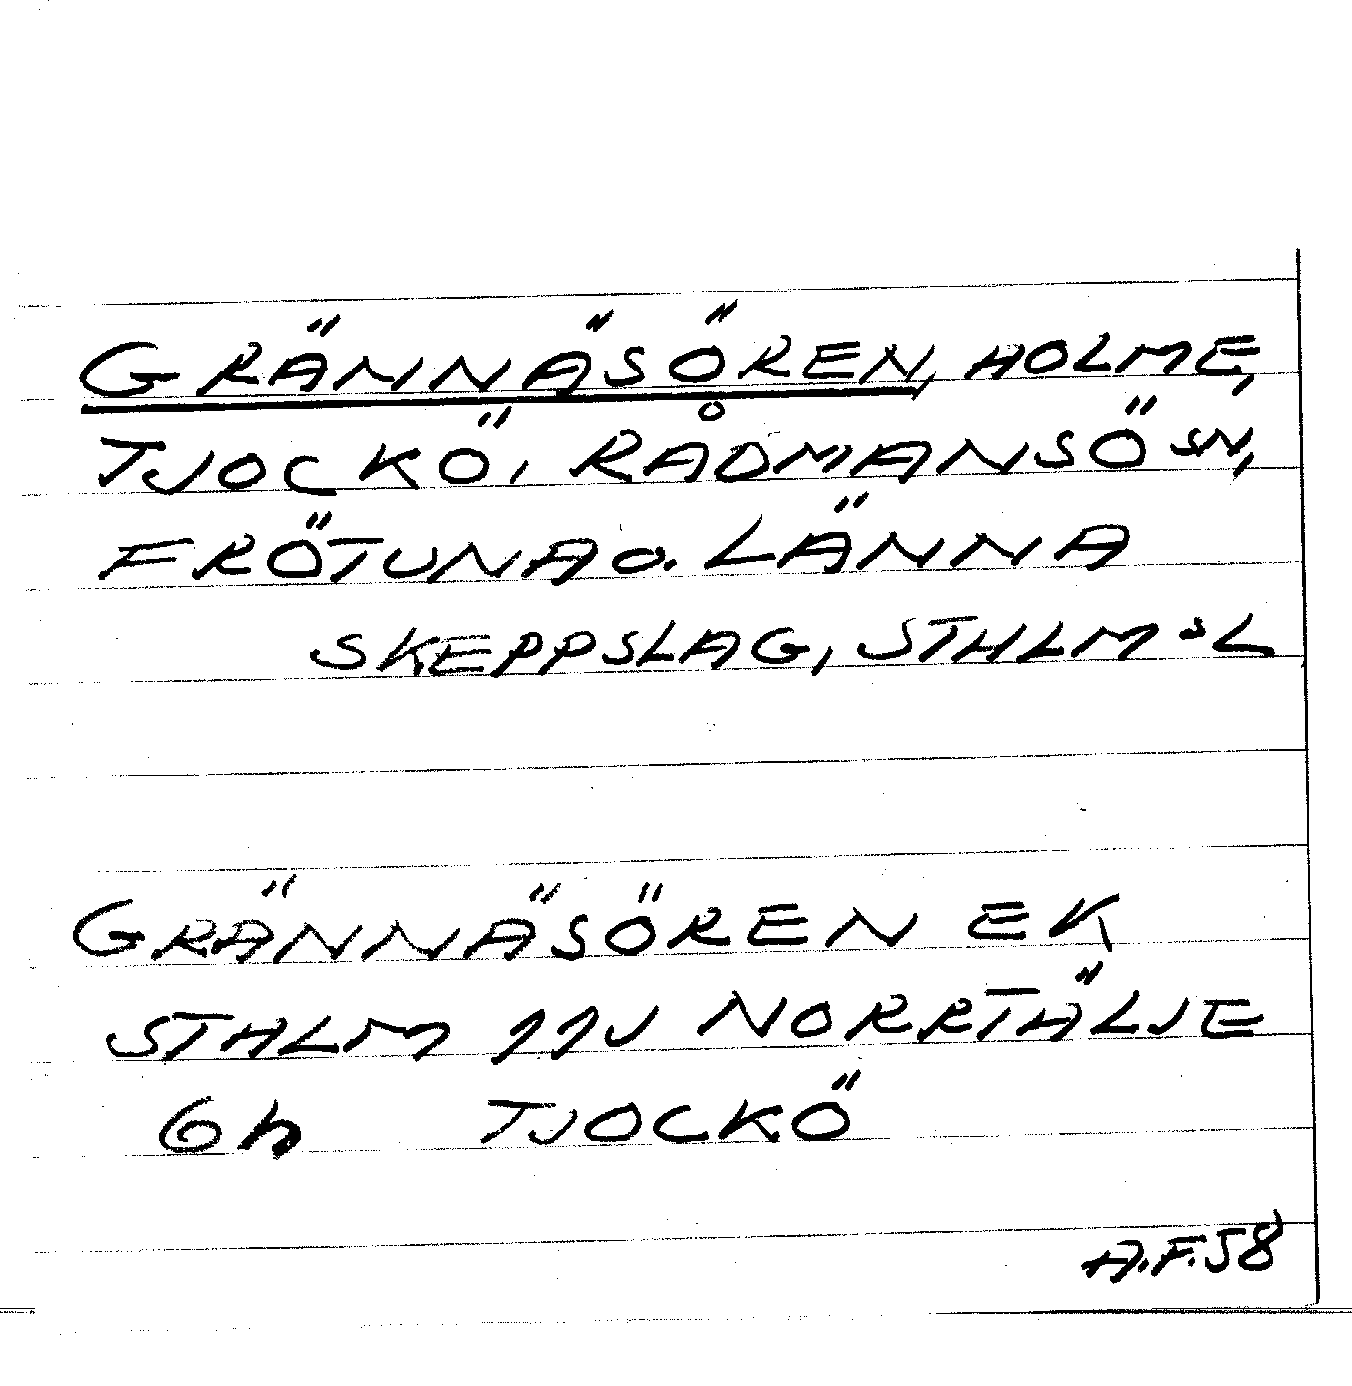 GRÄNNÄSÖREN, HOLME,
TJOCKÖ, RÅDMANSÖ SN,
FRÖTUNA O. LÄNNA
SKEPPSLAG, STHLMS L
GRÄNNÄSÖREN EK
STHLM 11J NORRTÄLJE
6h TJOCKÖ
A.F.58